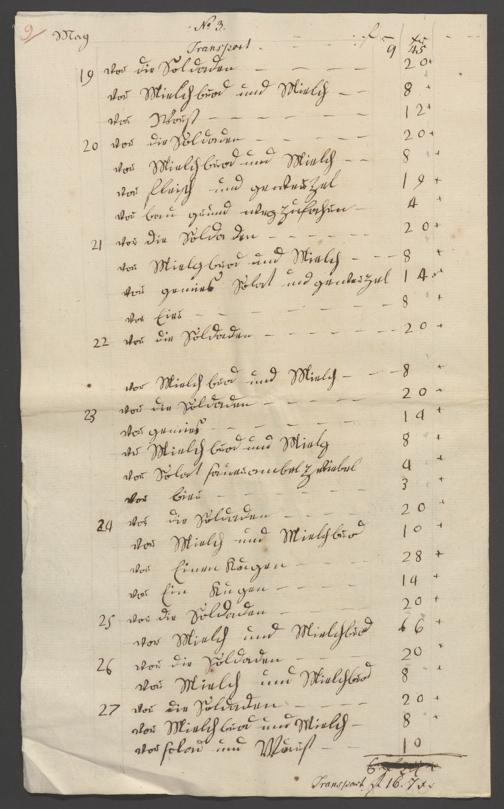 9
May
No 3.
Transport. f 9 xr 45
19 vor die Soldaden 20
vor Mielchbrod und Mielch 8
vor Wurst 12
20 vor die Soldaden 20
vor Mielchbrod und Mielch 8
vor fleisch und 19
vor 4
21 vor die Soldaden 20
vor Mielgbrod und Mielch 8
vor gemies Solat und 14
vor Eier 8
22 vor die Soldaden 20
vor Mielchbrod und Mielch 8
23 vor die Soldaden 20
vor gemies 14
vor Mielchbrod und Mielg 8
vor Solat 4
vor bier 3
24 vor die Soldaden 20
vor Mielch und Mielchbrod 10
vor Einen Kugen 28
vor Ein Kugen 14
25 vor die Soldaden 20
vor Mielch und Mielchbrod 6
26 vor die Soldaden 20
vor Mielch und Mielchbrod 8
27 vor die Soldaden 20
vor Mielchbrod und Mielch 8
vor solad und Wurst 10
Transport f 16. 7 xr